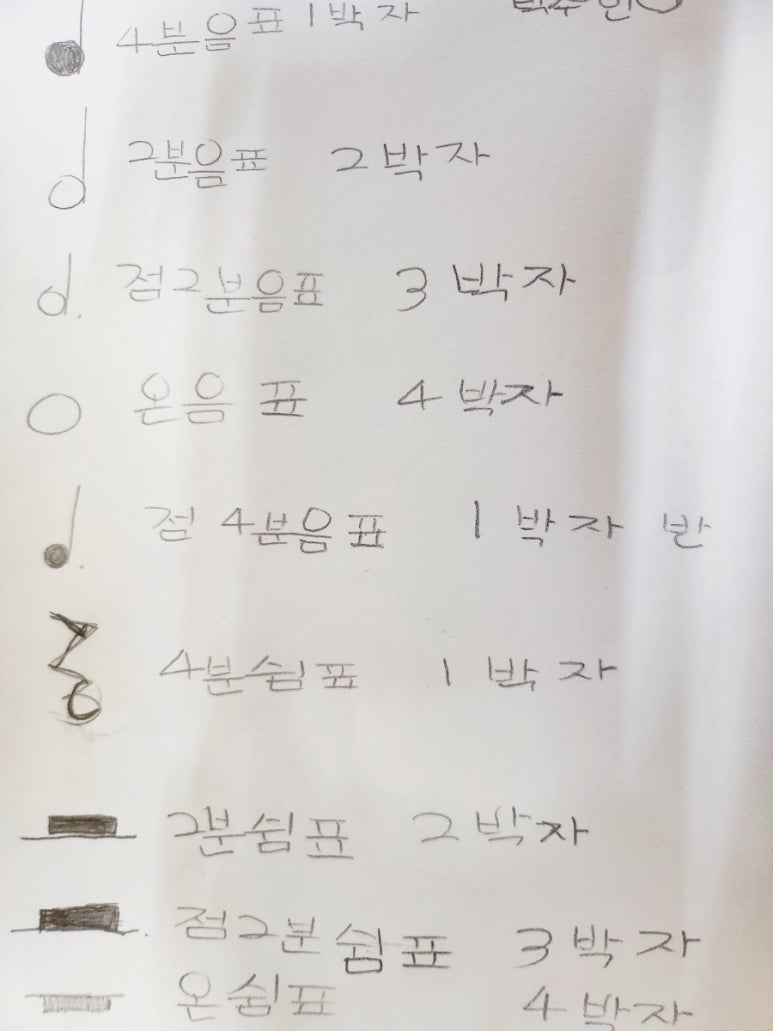 4분음표 1박자
2분음표 2박자
점2분음표 3박자
온음표 4박자
점 4분음표 1박자 반
4분쉼표 1박자
2분쉼표 2박자
점2분쉼표 3박자
온쉼표 4박자